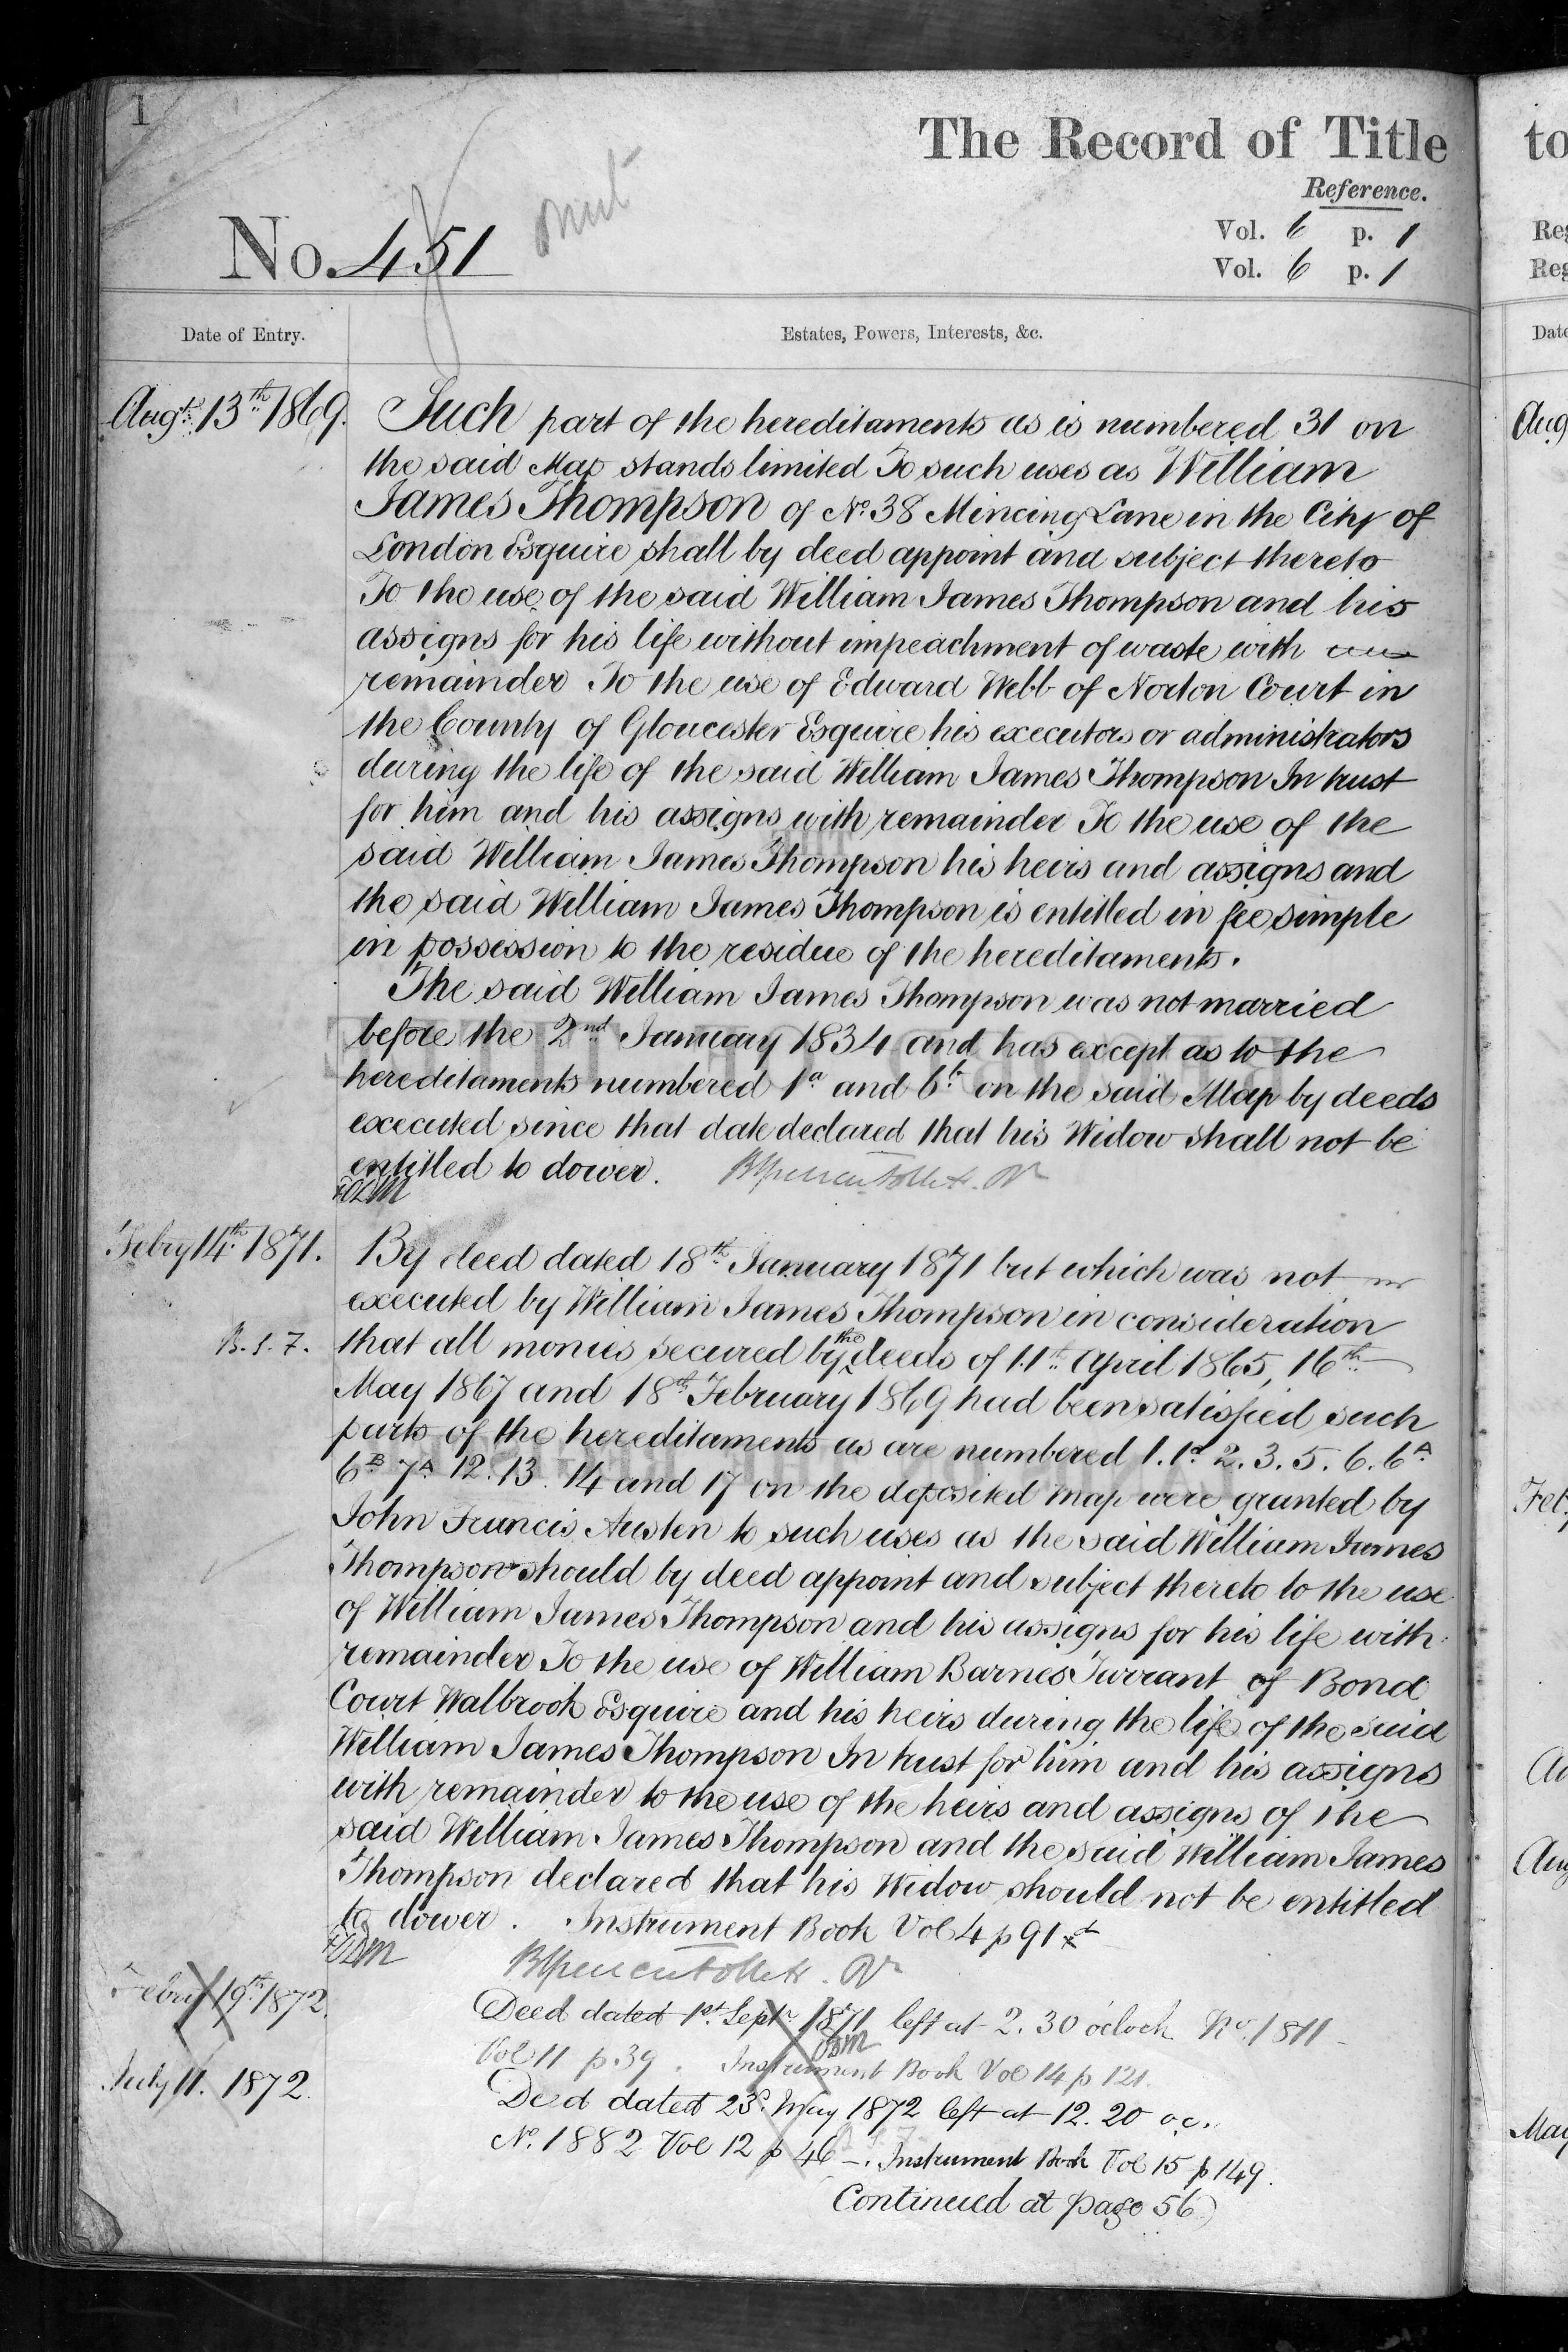 1
The Record of Title
Reference.
No. 451
Vol. 6 p. 1
Vol. 6 p. 1
Date of Entry.
Estates, Powers, Interests, &c.
Augt. 13th 1869.
Such part of the hereditaments as is numbered 31 on
the said Map stands limited To such uses as William
James Thompson of No. 38 Mincing Lane in the City of
London Esquire shall by deed appoint and subject thereto
To the use of the said William James Thompson and his
assigns for his life without impeachment of waste with
remainder To the use of Edward Webb of Norton Court in
the County of Gloucester Esquire his executors or administrators
during the life of the said William James Thompson In trust
for him and his assigns with remainder To the use of the
said William James Thompson his heirs and assigns and
the said William James Thompson is entitled in fee simple
in possession to the residue of the hereditaments.
The said William James Thompson was not married
before the 2nd January 1834 and has except as to the
hereditaments numbered 1a and 6b on the said Map by deeds
executed since that date declared that his Widow shall not be
entitled to dower.
Febry 14th 1871.
By deed dated 18th January 1871 but which was not
executed by William James Thompson in consideration
B.S.7.
that all monies secured by the deeds of 11th April 1865, 16th
May 1867 and 18th February 1869 had been satisfied such
parts of the hereditaments as are numbered 1. 1a 2. 3. 5. 6. 6A
6B 7A 12. 13. 14 and 17 on the deposited map were granted by
John Francis Austen to such uses as the said William James
Thompson should by deed appoint and subject thereto to the use
of William James Thompson and his assigns for his life with
remainder To the use of William Barnes Tarrant of Bond
Court Walbrook Esquire and his heirs during the life of the said
William James Thompson In trust for him and his assigns
with remainder to the use of the heirs and assigns of the
said William James Thompson and the said William James
Thompson declared that his Widow should not be entitled
to dower. Instrument Book Vol 4 p 91
Febry 19th 1872.
Deed dated 1st. Septr 1871 left at 2.30 o'clock No. 1811
Vol 11 p. 39. Instrument Book Vol 14 p 121.
July 11. 1872.
Deed dated 23d. May 1872 left at 12.20 o.c.
No. 1882 Vol 12 p 46 Instrument Book Vol 15 p 149.
Continued at page 56
to
Reg
Reg
Date
Aug
Feb
Au
Aug
May